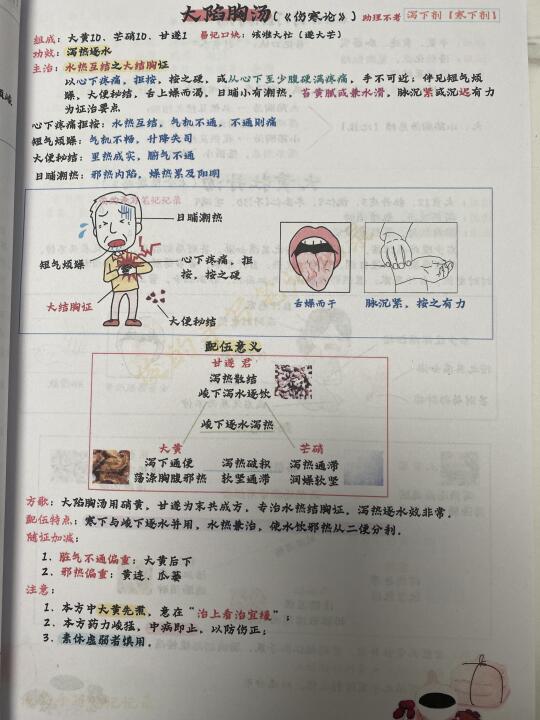 大陷胸汤(《伤寒论》) 助理不考 泻下剂【寒下剂】
组成：大黄10、芒硝10、甘遂1 易记口诀：该谁大忙（遂大芒）
功效：泻热逐水
主治：水热互结之大结胸证
以心下疼痛，拒按，按之硬，或从心下至少腹硬满疼痛，手不可近；伴见短气烦
躁，大便秘结，舌上燥而渴，日晡小有潮热，苔黄腻或兼水滑，脉沉紧或沉迟有力
为证治要点
心下疼痛拒按：水热互结，气机不通，不通则痛
短气烦躁：气机不畅，升降失司
大便秘结：里热成实，腑气不通
日晡潮热：邪热内陷，燥热累及阳明
日晡潮热
短气烦躁
心下疼痛，拒
按，按之硬
大结胸证
大便秘结
舌燥而干
脉沉紧，按之有力
配伍意义
甘遂 君
泻热散结
峻下泻水逐饮
峻下逐水泻热
大黄 芒硝
泻下通便 泻热破积 泻热通滞
荡涤胸腹邪热 软坚通滞 润燥软坚
方歌：大陷胸汤用硝黄，甘遂为末共成方，专治水热结胸证，泻热逐水效非常。
配伍特点：寒下与峻下逐水并用，水热兼治，使水饮邪热从二便分利。
随证加减：
1. 脏气不通偏重：大黄后下
2. 邪热偏重：黄连、瓜蒌
注意：
1. 本方中大黄先煮，意在“治上者治宜缓”；
2. 本方药力峻猛，中病即止，以防伤正；
3. 素体虚弱者慎用。